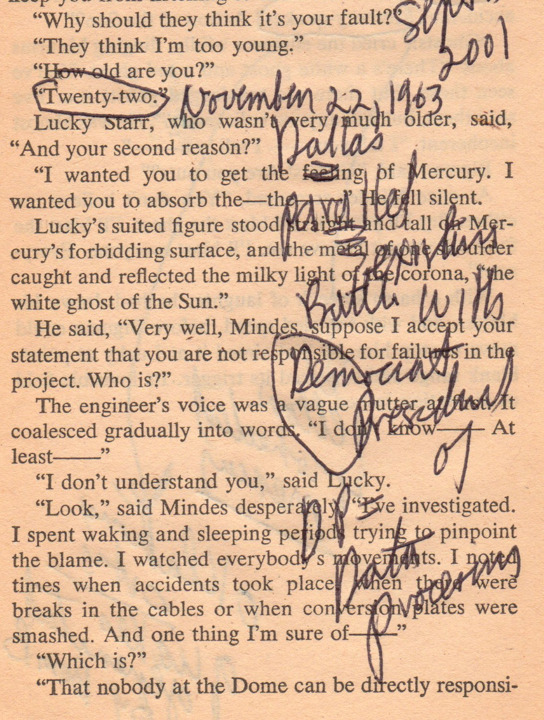 "Why should they think it's your fault?"
"They think I'm too young."
2001
"How old are you?"
"Twenty-two." November 22, 1963
Lucky Starr, who wasn't very much older, said,
Dallas
"And your second reason?"
"I wanted you to get the feeling of Mercury. I
wanted you to absorb the—the——" He fell silent.
parallel
Lucky's suited figure stood straight and tall on Mer-
cury's forbidding surface, and the metal of one shoulder
caught and reflected the milky light of the corona, "the
white ghost of the Sun."
Battle with
He said, "Very well, Mindes, suppose I accept your
statement that you are not responsible for failures in the
Democrat
project. Who is?"
President
The engineer's voice was a vague mutter at first. It
coalesced gradually into words. "I don't know—— At
of
least——"
"I don't understand you," said Lucky.
DP=
"Look," said Mindes desperately, "I've investigated.
I spent waking and sleeping periods trying to pinpoint
Data
the blame. I watched everybody's movements. I noted
processing
times when accidents took place, when there were
breaks in the cables or when conversion plates were
smashed. And one thing I'm sure of——"
"Which is?"
"That nobody at the Dome can be directly responsi-